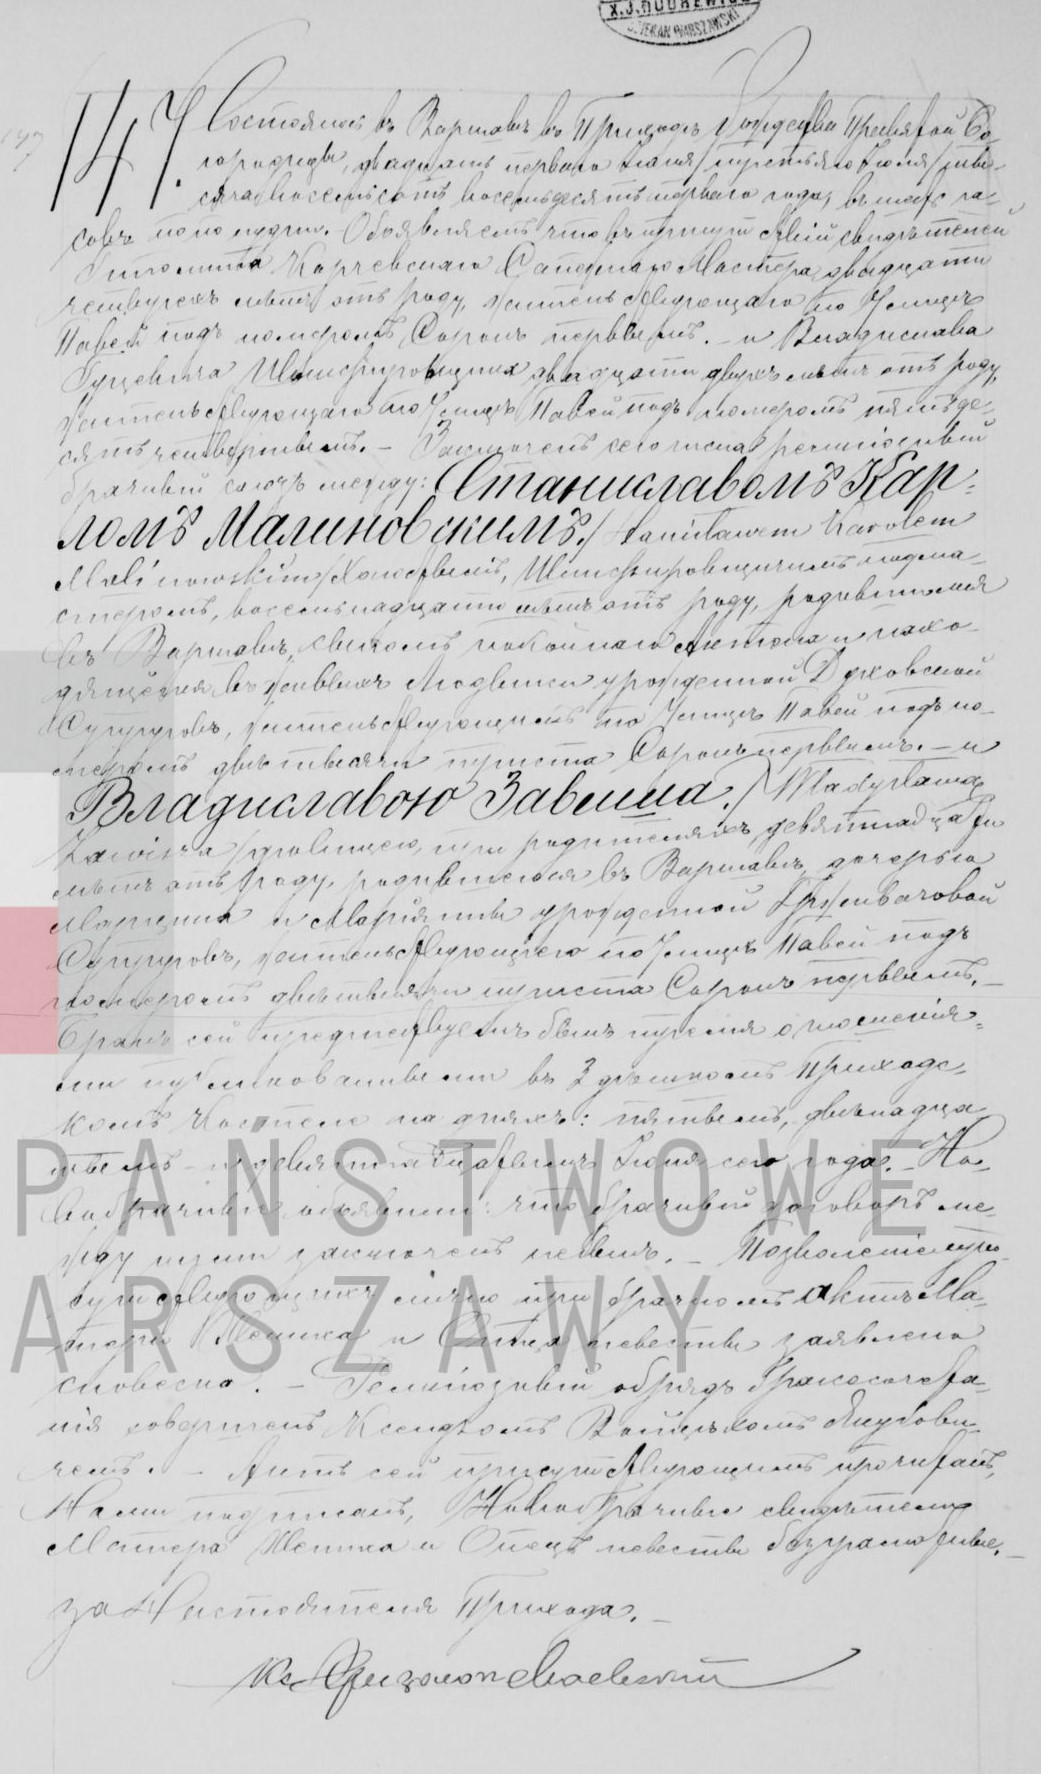 X.J.DUDREWICZ
DZIEKAN WARSZAWSKI
147
147. Состоялось въ Варшавѣ въ Приходѣ Рождества Пресвятой Бо-
городицы, двадцать перваго Іюня / третьяго Іюля / ты-
сяча восемьсотъ восемьдесятъ перваго года, въ шесть ча-
совъ по полудни. Объявляемъ что въ присутствіи свидѣтелей
Корчевскаго Сапожнаго Мастера двадцати
четырехъ лѣтъ отъ роду, жительствующаго по Улицѣ
Павей подъ номеромъ Сорокъ первымъ. – и Владислава
Шлифировщика двадцати двухъ лѣтъ отъ роду,
жительствующаго по Улицѣ Павой подъ номеромъ пятьде-
сятъ четвертымъ. – Заключенъ сего числа религіозный
брачный союзъ между: Станиславомъ Кар-
ломъ Малиновскимъ. / Stanisławem Karolem
Malinowskim / Холостымъ, Шлифировщичимъ подма-
стеромъ, восемьнадцати лѣтъ отъ роду, родившимся
въ Варшавѣ, сыномъ покойнаго Антона и нахо-
дящейся въ живыхъ урожденной
Супруговъ, жительствующимъ по Улицѣ Павей подъ но-
меромъ двѣ тысячи триста Сорокъ первымъ. – и
Владиславою Завиша. / Władysławą
Zawisza / дѣвицею, при родителяхъ, девятнадцати
лѣтъ отъ роду, родившеюся въ Варшавѣ, дочерью
Марцина и Маріянны урожденной
Супруговъ, жительствующею по Улицѣ Павей подъ
номеромъ двѣ тысячи триста Сорокъ первымъ. –
Бракъ сей предшествуемъ былъ тремя оглашенія-
ми публикованными въ Здѣшномъ Приходс-
комъ Костелѣ на дняхъ: пятымъ, двѣнадца-
тымъ и девятнадцатымъ Іюня сего года. – Но-
вобрачные объявили: что брачный договоръ ме-
жду ними заключенъ небылъ. – Позволеніе при-
сутствующихъ лично при брачномъ актѣ Ма-
тери Жениха и Отца невѣсты заявлено
словесно. – Религіозный обрядъ бракосочета-
нія совершенъ Ксендзомъ Якубови-
чемъ. – Актъ сей присутствующимъ прочитанъ,
Нами подписанъ, Новобрачные свидѣтели
Матерь Жениха и Отецъ невѣсты безграмотные. –
за Настоятеля Прихода. –
Кс.
PAŃSTWOWE
ARSZAWY